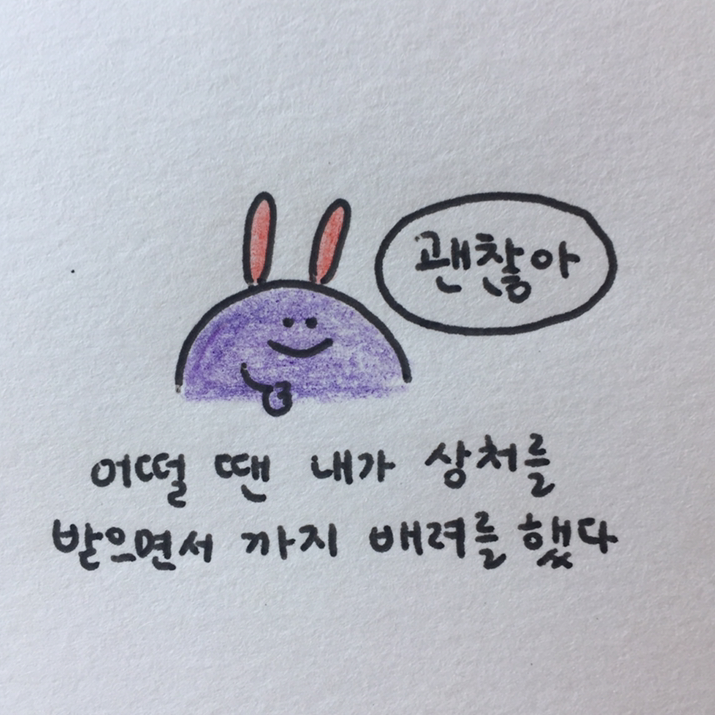 괜찮아
어떨 땐 내가 상처를
받으면서 까지 배려를 했다